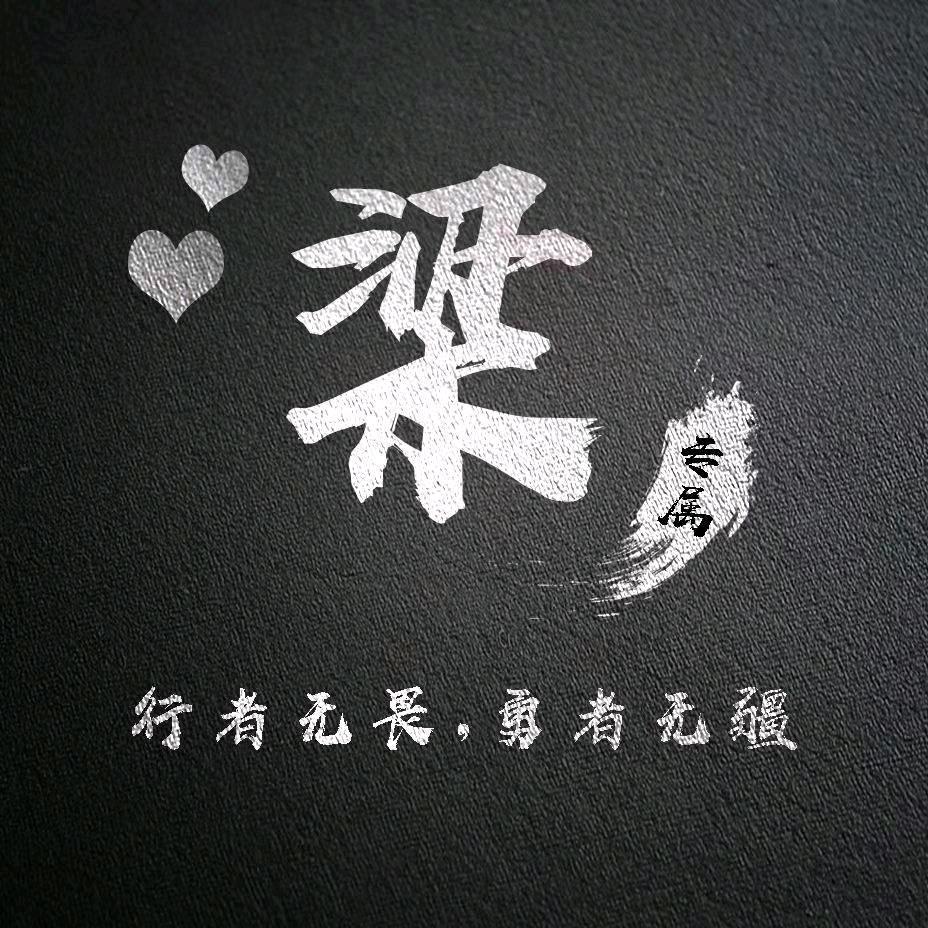 梁
专属
行者无畏，勇者无疆